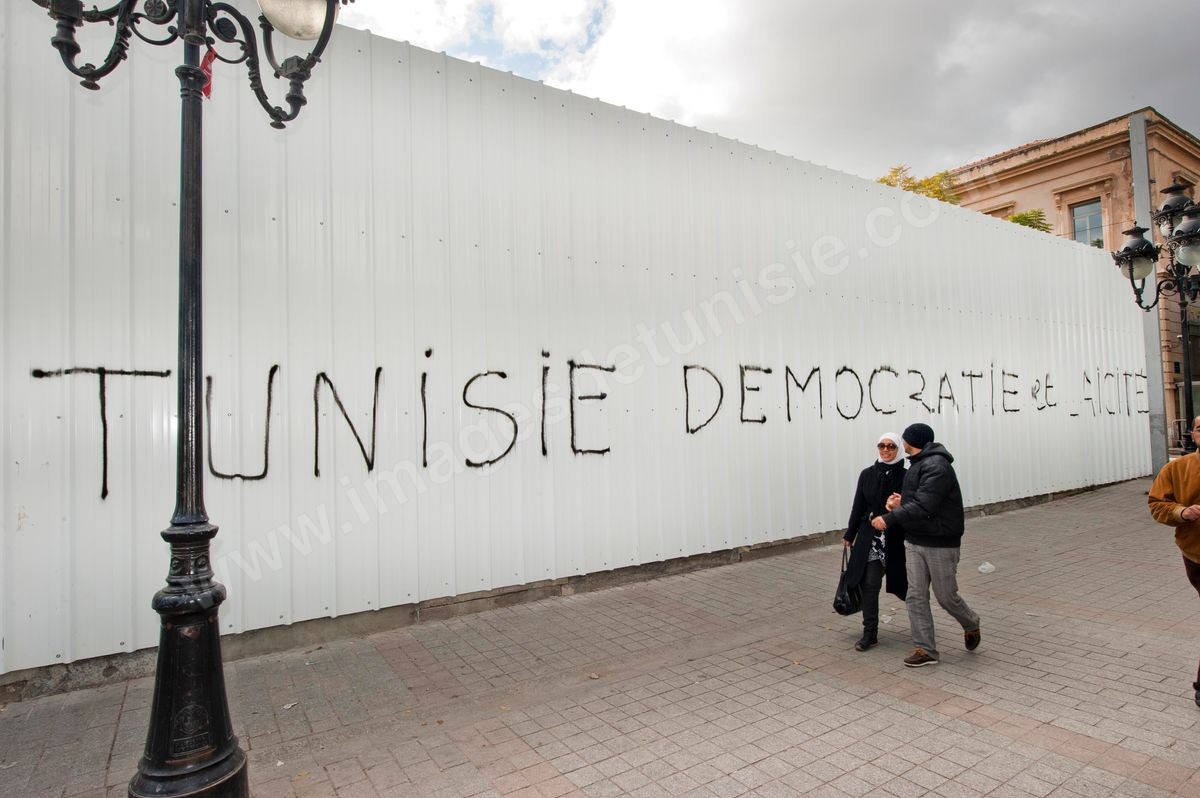 TUNiSiE DEMOCRATIE et LAICITE
www.imagesdetunisie.com